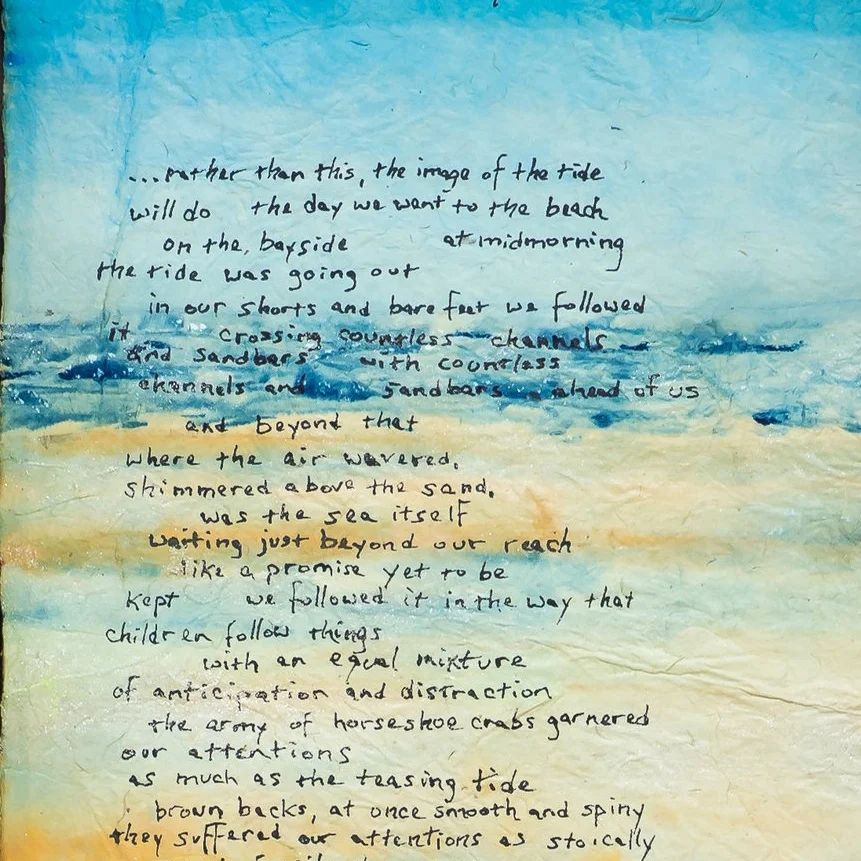 ...rather than this, the image of the tide
will do the day we went to the beach
on the, bayside at midmorning
the tide was going out
in our shorts and bare feet we followed
it crossing countless channels
and sandbars with countless
channels and sandbars ahead of us
and beyond that
where the air wavered,
shimmered above the sand,
was the sea itself
waiting just beyond our reach
like a promise yet to be
kept we followed it in the way that
children follow things
with an equal mixture
of anticipation and distraction
the army of horseshoe crabs garnered
our attentions
as much as the teasing tide
brown backs, at once smooth and spiny
they suffered our attentions as stoically